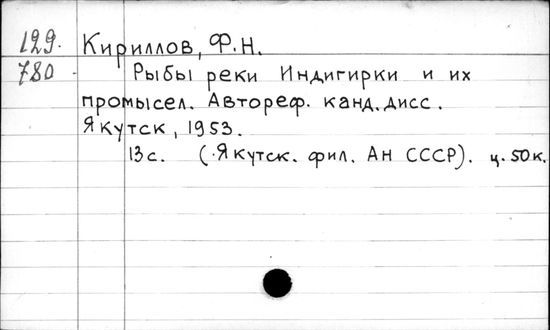 129. Кириллов, Ф.Н.
780 Рыбы реки Индигирки и их
промысел. Автореф. канд. дисс.
Якутск, 1953.
13 с. (Якутск. фил. Ан СССР). ц. 50 к.